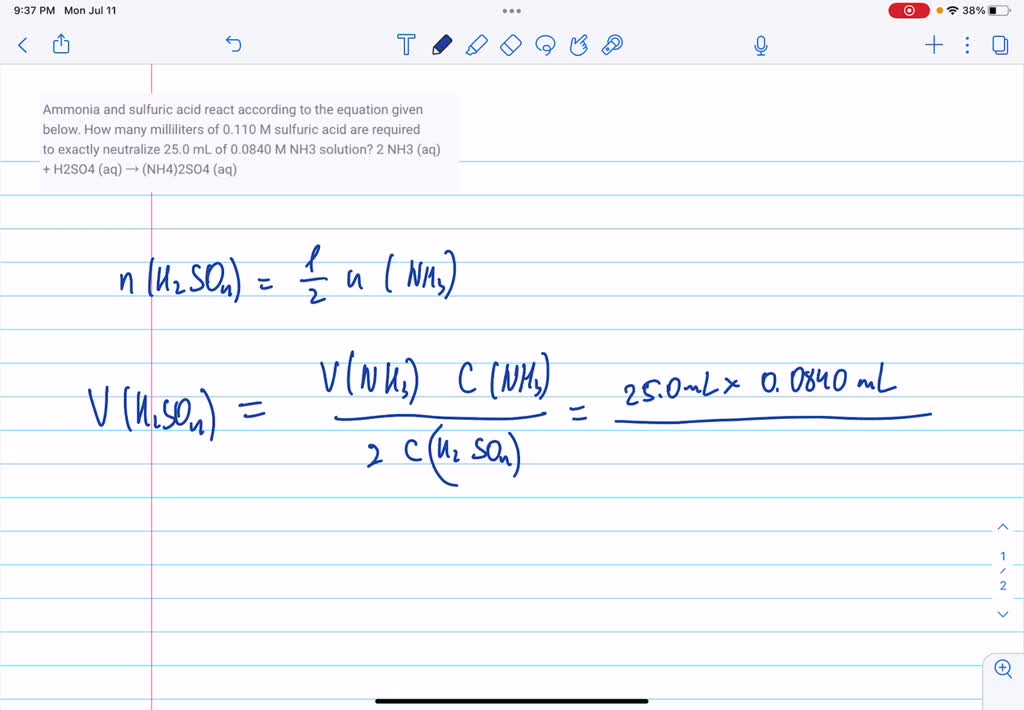 9:37 PM Mon Jul 11
38%
Ammonia and sulfuric acid react according to the equation given
below. How many milliliters of 0.110 M sulfuric acid are required
to exactly neutralize 25.0 mL of 0.0840 M NH3 solution? 2 NH3 (aq)
+ H2SO4 (aq) → (NH4)2SO4 (aq)
n (H₂SO₄) = 1/2 n (NH₃)
V (H₂SO₄) = V(NH₃) C (NH₃) / 2 C (H₂SO₄) = 25.0 mL × 0.0840 mL
1
/
2